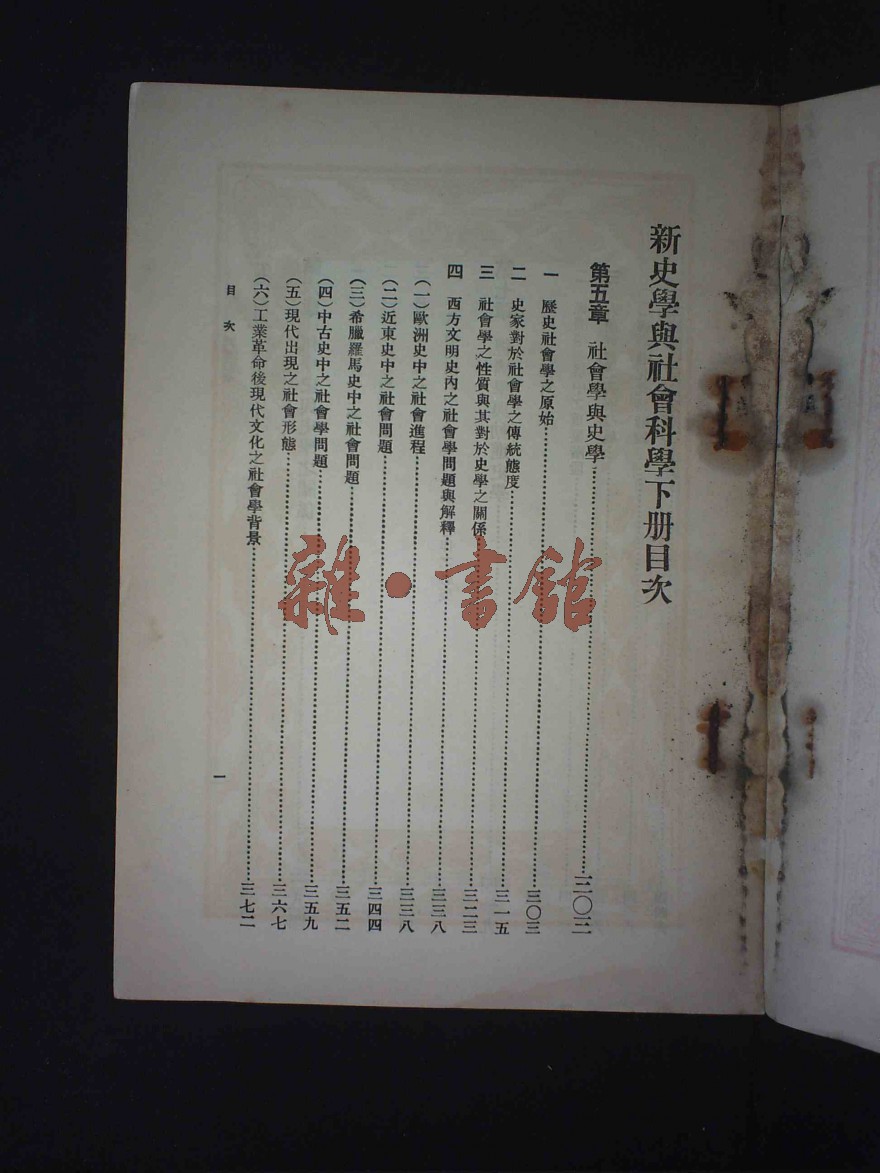 新史學與社會科學下册目次
第五章　社會學與史學……三〇三
一　歷史社會學之原始……三〇三
二　史家對於社會學之傳統態度……三一五
三　社會學之性質與其對於史學之關係……三二三
四　西方文明史內之社會學問題與解釋……三三八
(一)歐洲史中之社會進程……三三八
(二)近東史中之社會問題……三四四
(三)希臘羅馬史中之社會問題……三五二
(四)中古史中之社會學問題……三五九
(五)現代出現之社會形態……三六七
(六)工業革命後現代文化之社會學背景……三七二
目次
一
雜·書館